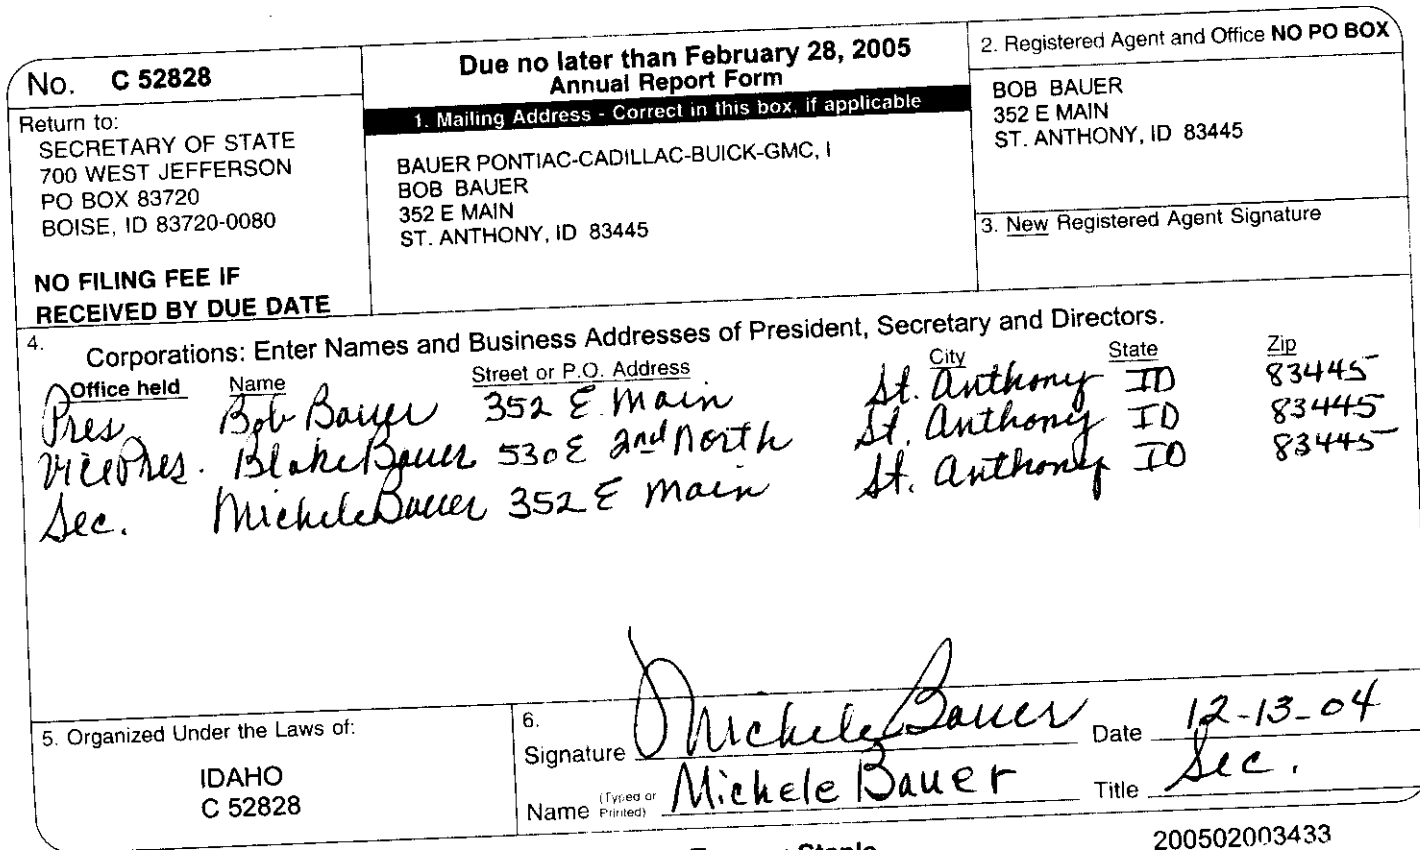 No. C 52828
Return to:
SECRETARY OF STATE
700 WEST JEFFERSON
PO BOX 83720
BOISE, ID 83720-0080
NO FILING FEE IF
RECEIVED BY DUE DATE
Due no later than February 28, 2005
Annual Report Form
1. Mailing Address - Correct in this box, if applicable
BAUER PONTIAC-CADILLAC-BUICK-GMC, I
BOB BAUER
352 E MAIN
ST. ANTHONY, ID 83445
2. Registered Agent and Office NO PO BOX
BOB BAUER
352 E MAIN
ST. ANTHONY, ID 83445
3. New Registered Agent Signature
4. Corporations: Enter Names and Business Addresses of President, Secretary and Directors.
Office held Name Street or P.O. Address City State Zip
Pres Bob Bauer 352 E. Main St. Anthony ID 83445
Vice Pres. Blake Bauer 530 E 2nd North St. Anthony ID 83445
Sec. Michele Bauer 352 E Main St. Anthony ID 83445
5. Organized Under the Laws of:
IDAHO
C 52828
6.
Signature Michele Bauer Date 12-13-04
Name (Typed or Printed) Michele Bauer Title Sec.
200502003433